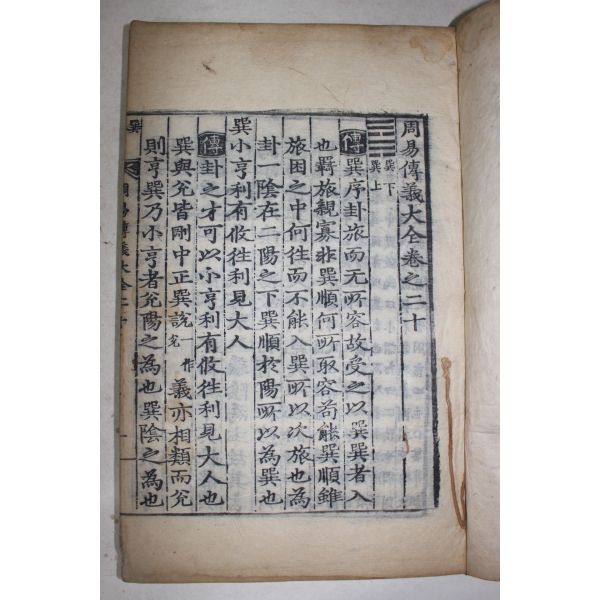 周易傳義大全卷之二十
䷸ 巽下巽上
傳 巽序卦旅而无所容故受之以巽巽者入
也羇旅親寡非巽順何所取容苟能巽順雖
旅困之中何徃而不能入巽所以次旅也為
卦一陰在二陽之下巽順於陽所以為巽也
巽小亨利有攸徃利見大人
傳 卦之才可以小亨利有攸徃利見大人也
巽與兊皆剛中正巽說一作兊義亦相類而兊
則亨巽乃小亨者兊陽之為也巽陰之為也
巽 周易傳義大全二十 一